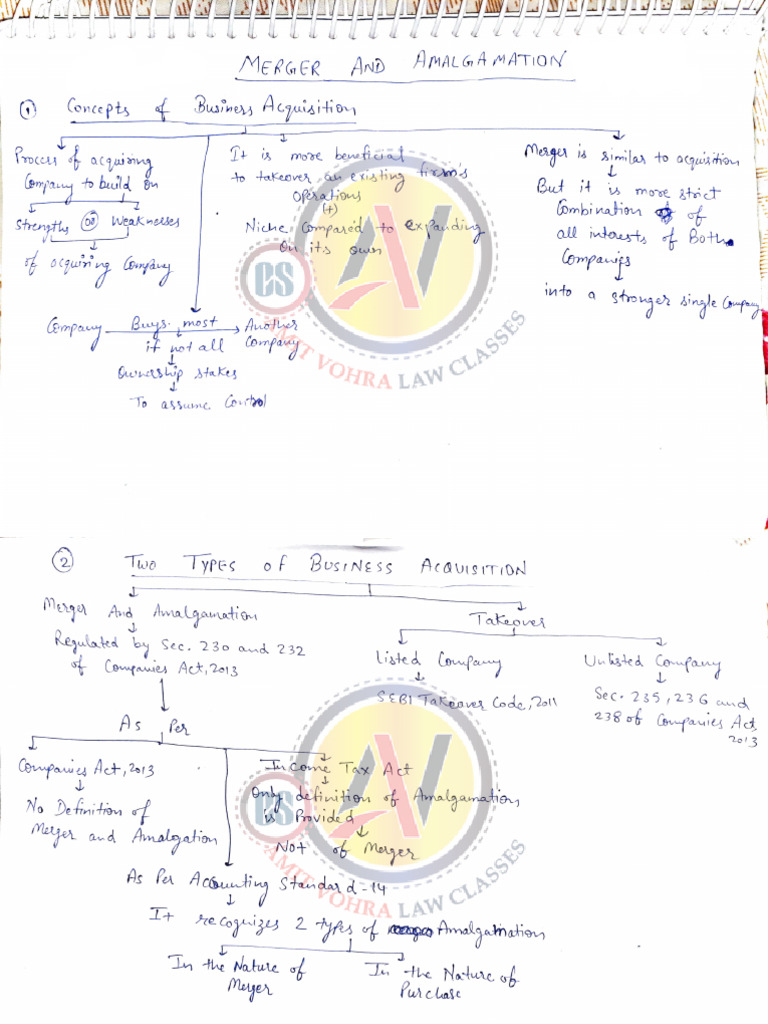 MERGER AND AMALGAMATION
1 Concepts of Business Acquisition
Process of acquiring
Company to build on
Strengths OR Weaknesses
of acquiring Company
Company Buys most Another
if not all Company
Ownership stakes
To assume Control
It is more beneficial
to takeover an existing firm's
Operations
(+)
Niche Compared to expanding
On its own
Merger is similar to acquisition
But it is more strict
Combination of
all interests of Both
Companies
into a stronger single Company
CS AV
AMIT VOHRA LAW CLASSES
2 TWO TYPES OF BUSINESS ACQUISITION
Merger And Amalgamation
Regulated by Sec. 230 and 232
of Companies Act, 2013
Takeover
Listed Company
SEBI Takeover Code, 2011
Unlisted Company
Sec. 235, 236 and
238 of Companies Act,
2013
As Per
Companies Act, 2013
No Definition of
Merger and Amalgation
Income Tax Act
Only definition of Amalgamation
is Provided
Not of Merger
As Per Accounting Standard-14
It recognizes 2 types of Amalgamation
In the Nature of
Merger
In the Nature of
Purchase
CS AV
AMIT VOHRA LAW CLASSES